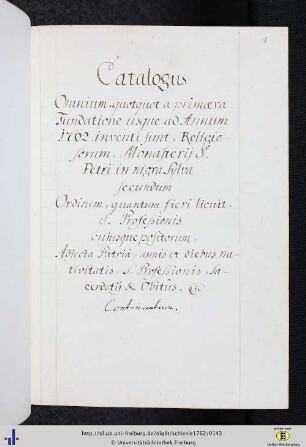 1
Catalogus
Omnium, quotquot a primæva
Fundatione usque ad Annum
1762 inventi sunt, Religio
sorum Monasterij S.
Petri in nigra Sylva
secundum
Ordinem, quantum fieri licuit,
S. Professionis
cujusque positorum,
Adjecta Patria, annis et diebus na-
tivitatis, S. Professionis, Sa-
cerdotij & Obitûs. &c
Continuatum.
http://dl.ub.uni-freiburg.de/diglit/schienle1762/0143
© Universitätsbibliothek Freiburg